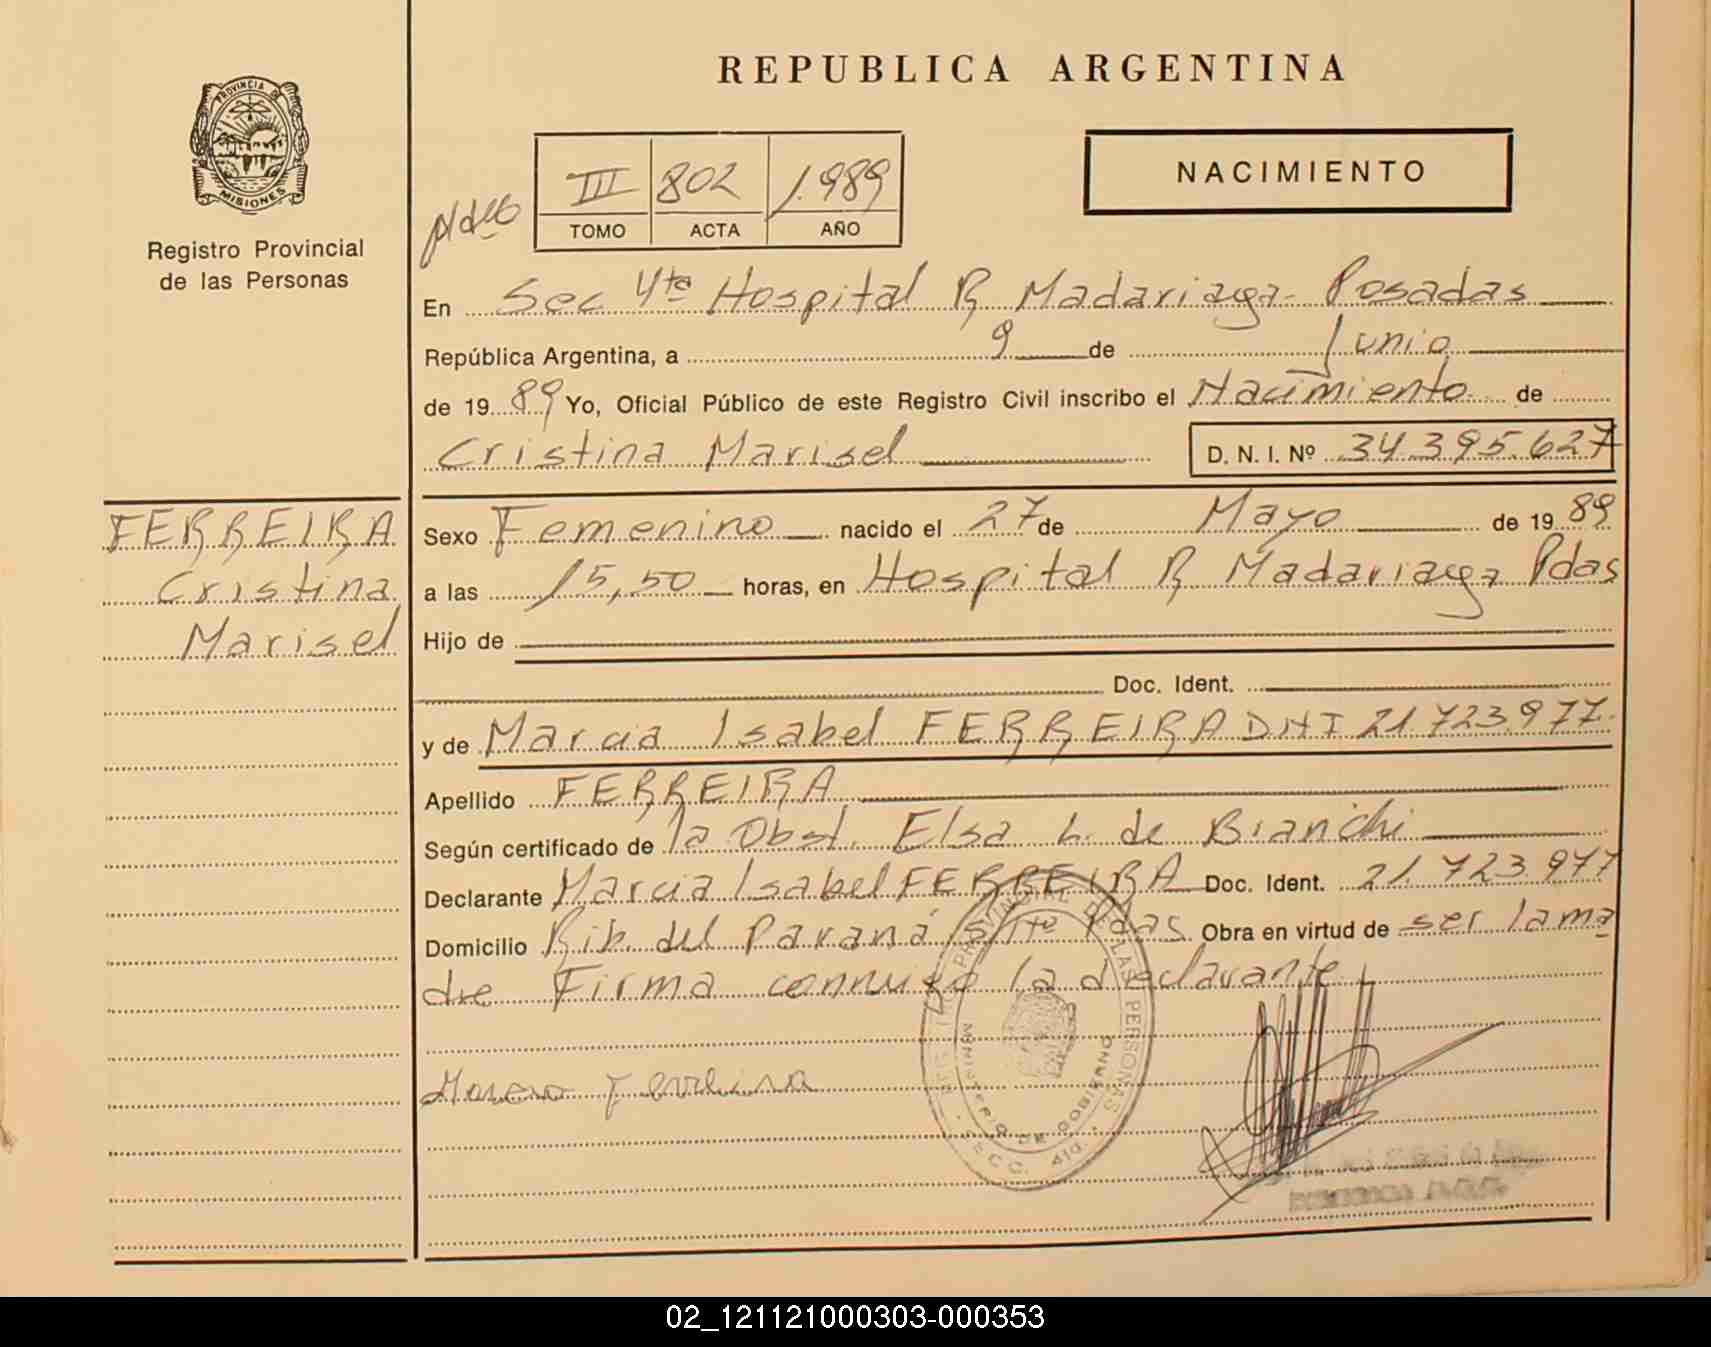 REPUBLICA ARGENTINA
PROVINCIA DE
MISIONES
Registro Provincial
de las Personas
III 802 1.989
TOMO ACTA AÑO
NACIMIENTO
En Sec 4ta Hospital R Madariaga - Posadas
República Argentina, a 9 de Junio
de 19 89 Yo, Oficial Público de este Registro Civil inscribo el Nacimiento de
Cristina Marisel D. N. I. Nº 34.395.627
FERREIRA
Cristina
Marisel
Sexo Femenino nacido el 27 de Mayo de 19 89
a las 15,50 horas, en Hospital R Madariaga Pdas
Hijo de
Doc. Ident.
y de Marcia Isabel FERREIRA DNI 21.723.977.
Apellido FERREIRA
Según certificado de la Obst. Elsa L. de Bianchi
Declarante Marcia Isabel FERREIRA Doc. Ident. 21.723.977
Domicilio Rib. del Paraná s/nº Pdas Obra en virtud de ser la ma
dre Firma conmigo la declarante
PROVINCIAL DE LAS PERSONAS
MINISTERIO DE GOBIERNO
SECC. 4ta.
02_121121000303-000353